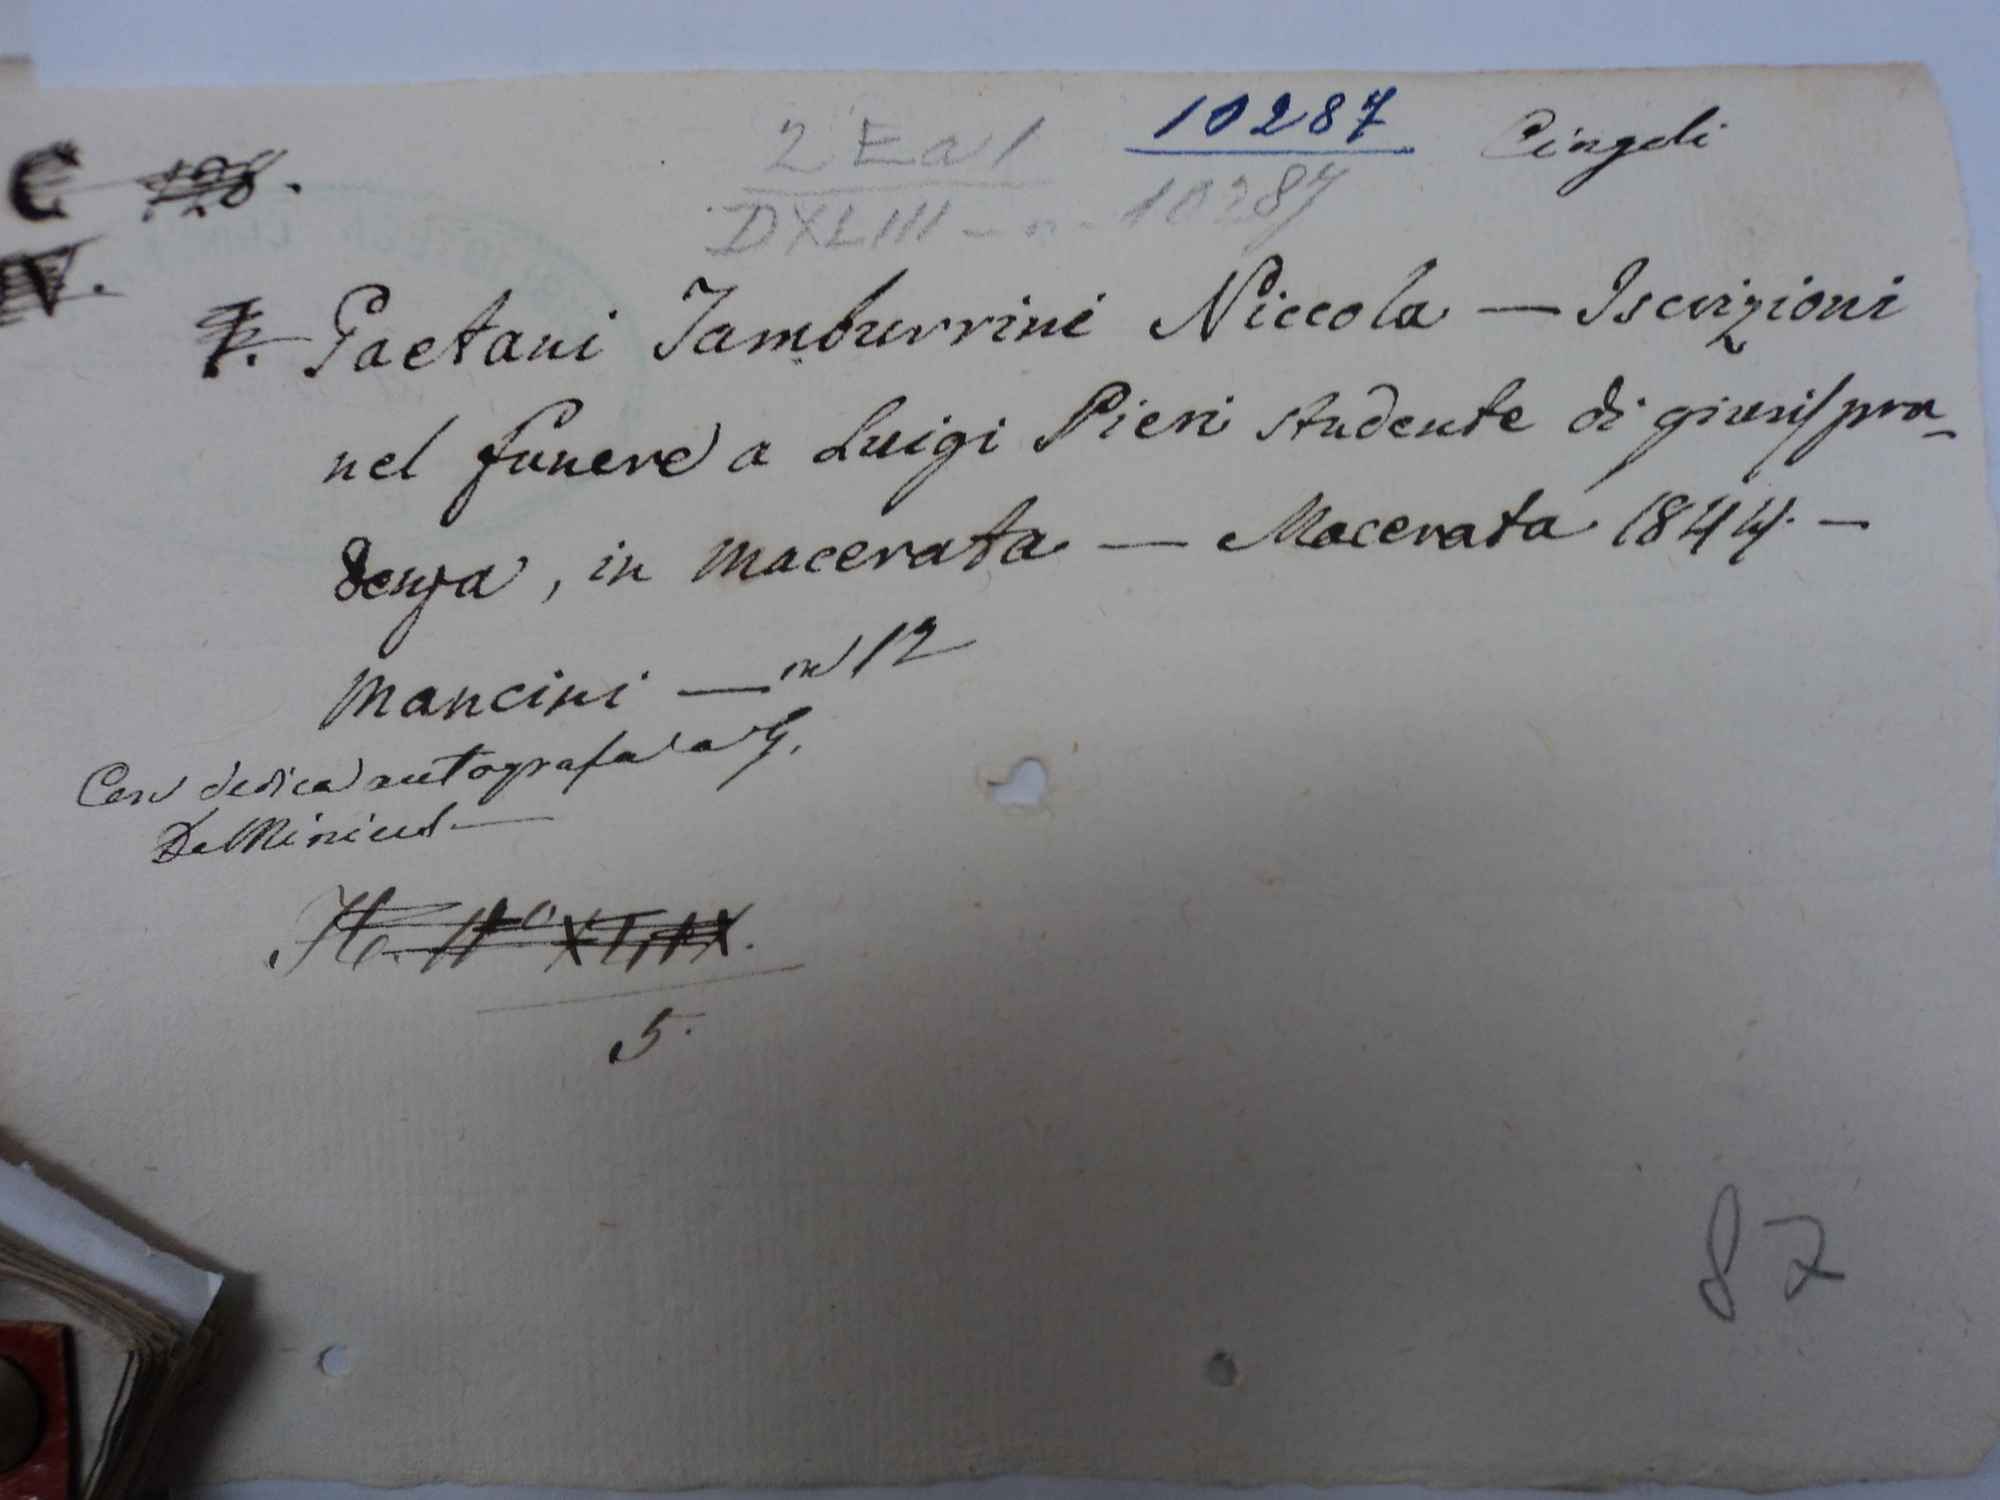 10287 Cingoli
2 E a 1
DXLIII - n. 10287
C
N.
Gaetani Tamburrini Niccola — Iscrizioni
nel funere a Luigi Pieri studente di giurispru-
denza, in Macerata — Macerata 1844. —
Mancini — in 12
Con dedica autografa a G.
De Minicis —
5.
87